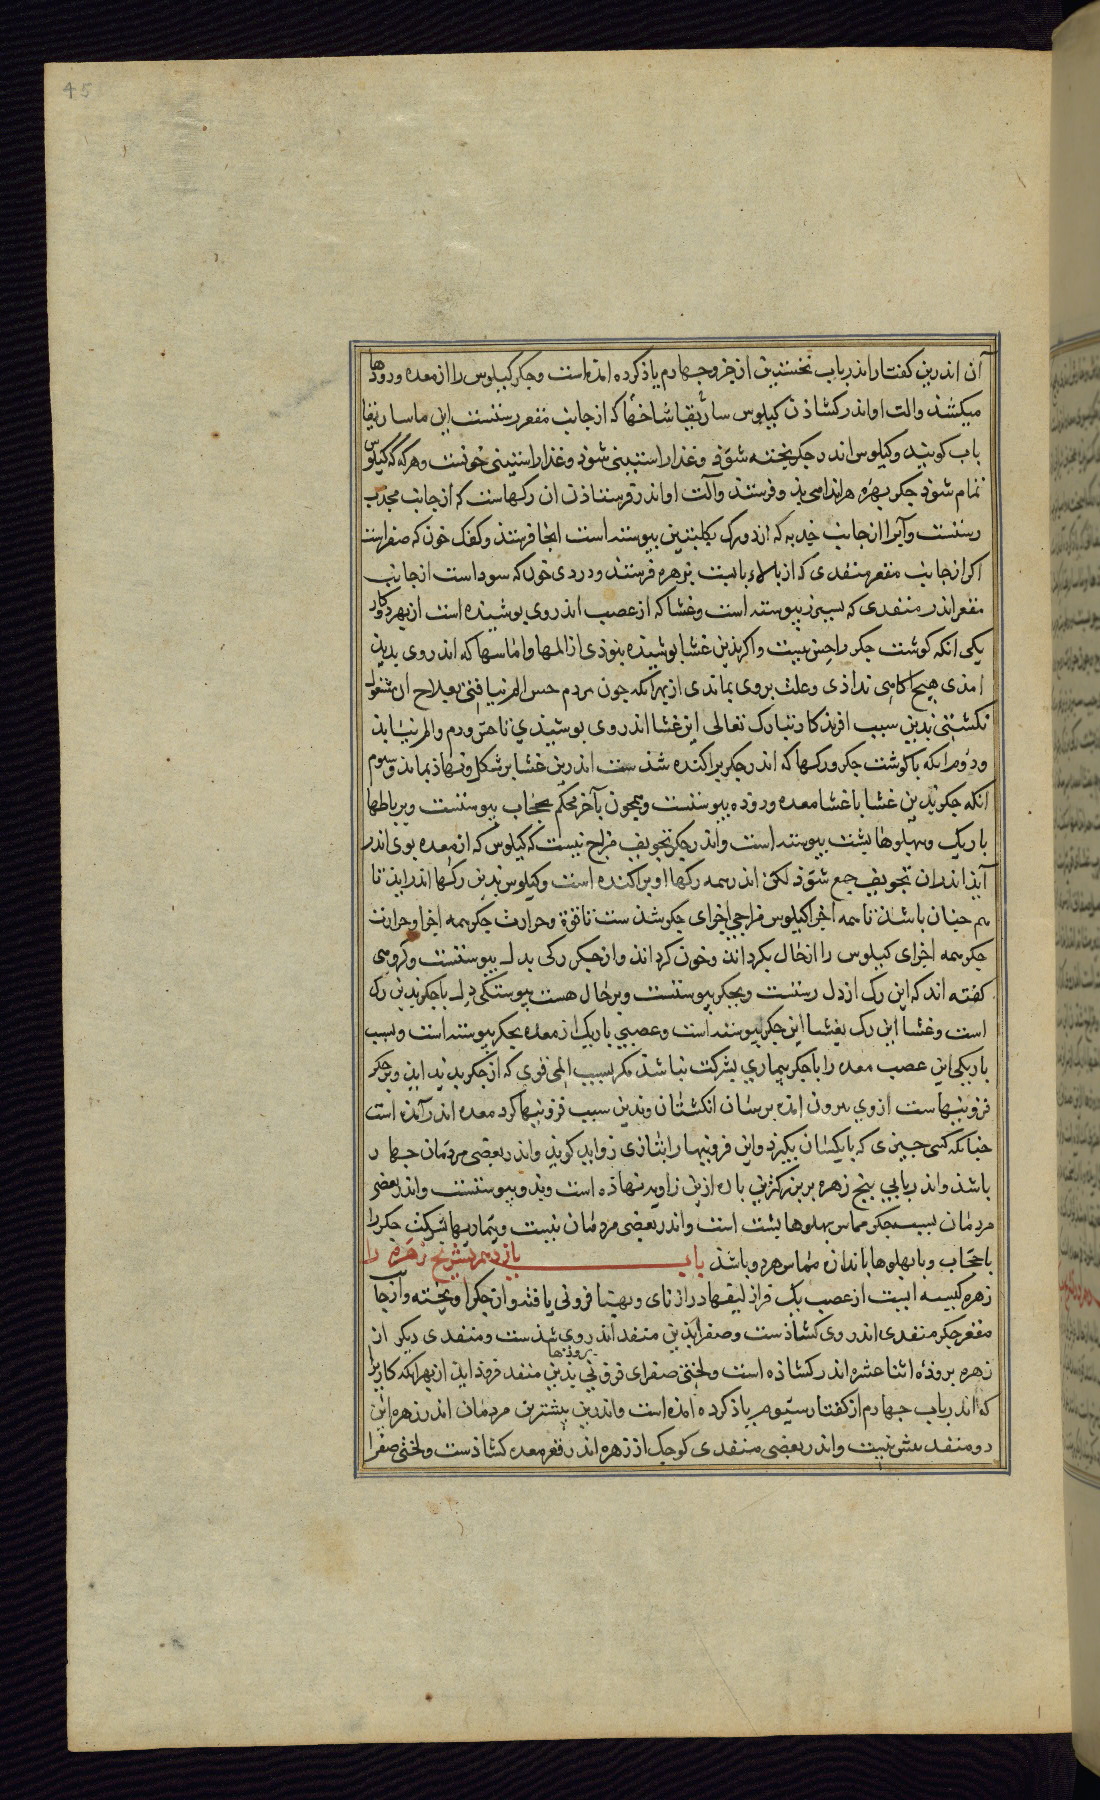 45
آن اندرین کفتار اندر باب نخستین از جزو جهارم یاذ کرده امذه است و جکر کیلوس را از معده و روذها
میکشذ والت او اندر کشاذن کیلوس سارُبقا شاخهٔا که از جانب مقعر رستست این ماساریقا
باب کویند و کیلوس اندر جکر بخته شوذ و غذا راستینی شوذ و غذا راستینی خونست و هرکه که کیلوس
تمام شوذ جکر بهرهٔ هر اندامی بذو فرستذ والت او اندر فرستاذن ان رکهاست که از جانب محدب
رستست وآبرا از جانب حدبه که از دو رک بکلیتین بیوسته است انجا فرستذ و کفک خون که صفراست
اکر از جانب مقعر بمنفذی که از بالاء بابست بزهره فرستذ و دردی خون که سوداست از جانب
مقعر اندر منفذی که بسبرز بیوسته است و غشا که از عصب اندر وی بوشیذه است از بهر دو کار
یکی انکه کوشت جکر را حس نیست و اکر بذین غشا بوشیذه نبوذی از المها و اماسها که اندر وی بدیذ
امذی هیج اکاهی نداذی و علت بر وی بماندی از بهر انکه جون مردم حس الم نیافتی بعلاج ان مشغول
نکشتی بذین سبب افریذکار تبارک تعالی این غشا اندر وی بوشیذ تا حس ورم والم بیابذ
و دوم انکه تا کوشت جکر و رکها که اندر جکر براکنده شذست اندرین غشا بر شکل و نهاذ بماند و سوم
انکه جکر بذین غشا با غشا معده و روذه بیوستست و همجون بآخر محکم بحجاب بیوستست و برباطها
باریک و بهلوها بشت بیوسته است و اندر جکر تجویف فراخ نیست که کیلوس که از معده بوی اندر
آیذ اندر ان تجویف جمع شوذ لکن اندر همه رکها او براکنده است و کیلوس بذین رکها اندر ایذ تا
هم جنان باشذ تا همه اجزا کیلوس فراجی اجزای جکر شذست تا قوة و حرارت جکر همه اجزا و حرارت
جکر همه اجزای کیلوس را از حال بکرداند و خون کرداند و از جکر رکی بدل بیوستست و کروهی
کفته اند که این رک از دل رستست و بجکر بیوستست و بر حال هست بیوستکی دل با جکر بذین رک
است و غشا این رک بغشا این جکر بیوسته است و عصبی باریک از معده بجکر بیوسته است و بسبب
باریکی این عصب معده را با جکر بیماری بشرکت نباشذ مکر بسبب المی قوی که از جکر بدیذ ایذ و بر جکر
فزونیهاست از وی بیرون امذه برسان انکشتان و بذین سبب فزونیها کرد معده اندر آمذه است
جنانکه کسی جیزی که با یکسان بکیرد و این فزونیها را بتازی زواید کویند و اندر بعضی مردمان جهار
باشذ و اندر بابی بنج زهره برین بزرکترین باره ازین زاویه نهاذه است و بذو بیوستست و اندر بعضی
مردمان بسبب جکر مماس بهلوها بشت است و اندر بعضی مردمان نیست و بیماریها شرکت جکر را
با حجاب و با بهلوها باندازه مماس هر دو باشذ باب یازدهم تشریح زهره را
زهره کیسه ایست از عصب یک فراز لیفها در از نای و بهنا فرونی یافته و از جکر اویخته و از جانب
مقعر جکر منفذی اندر وی کشاذست و صفرا بذین منفذ اندر وی شذست و منفذی دیکر از
زهره بروذهٔ اثنا عشره اندر کشاذه است و لختی صفرای فزونی بذین منفذ فروذ ایذ از بهر انکه کاریرا
بروذها
که اندر باب جهارم از کفتار سیّوم یاذ کرده امذه است و اندرین بیشترین مردمان اندر زهره این
دو منفذ بیش نیست و اندر بعضی منفذی کوجک از زهره اندر قعر معده کشاذست و لختی صفرا